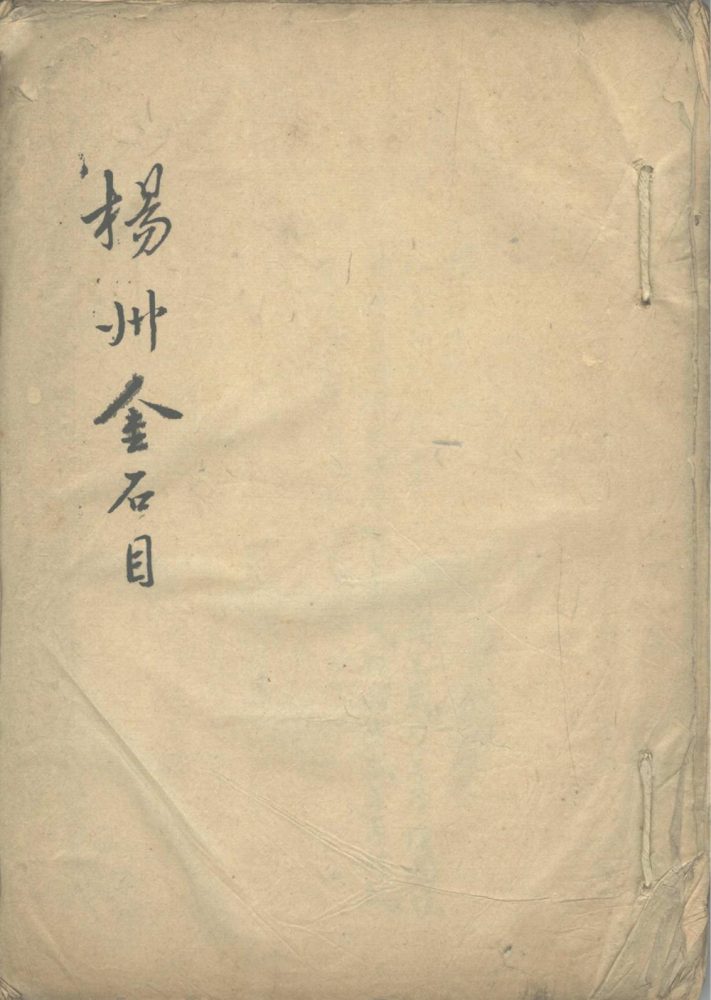 楊州金石目